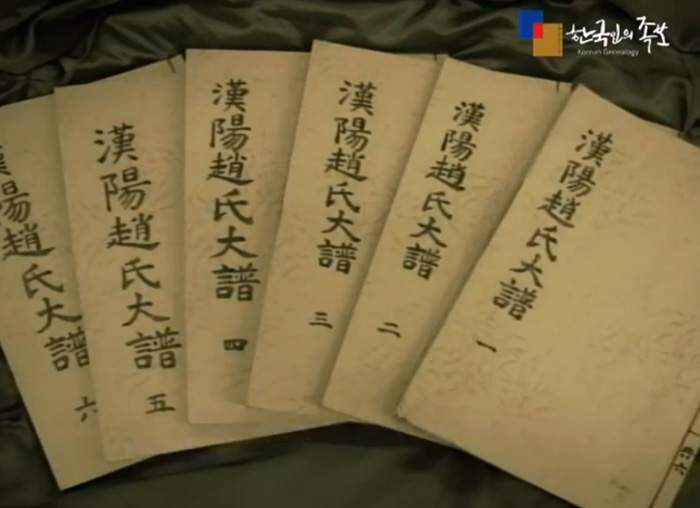 한국인의 족보
Korean Genealogy
漢陽趙氏大譜 一
漢陽趙氏大譜 二
漢陽趙氏大譜 三
漢陽趙氏大譜 四
漢陽趙氏大譜 五
漢陽趙氏大譜 六